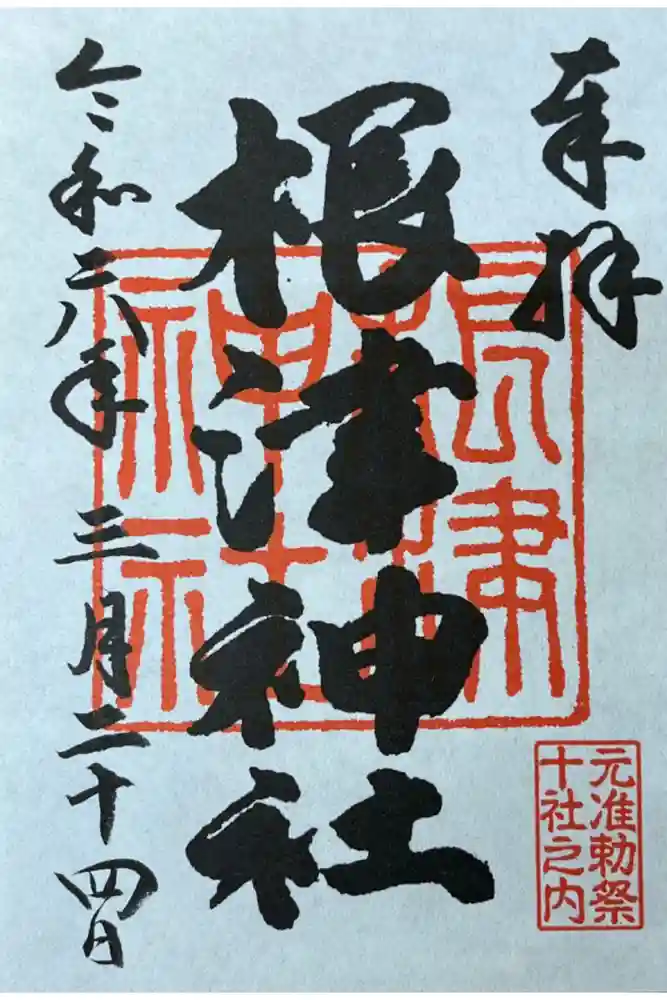 奉拝
元准勅祭
十社之内
根津神社
根津
神社
令和六年三月二十四日